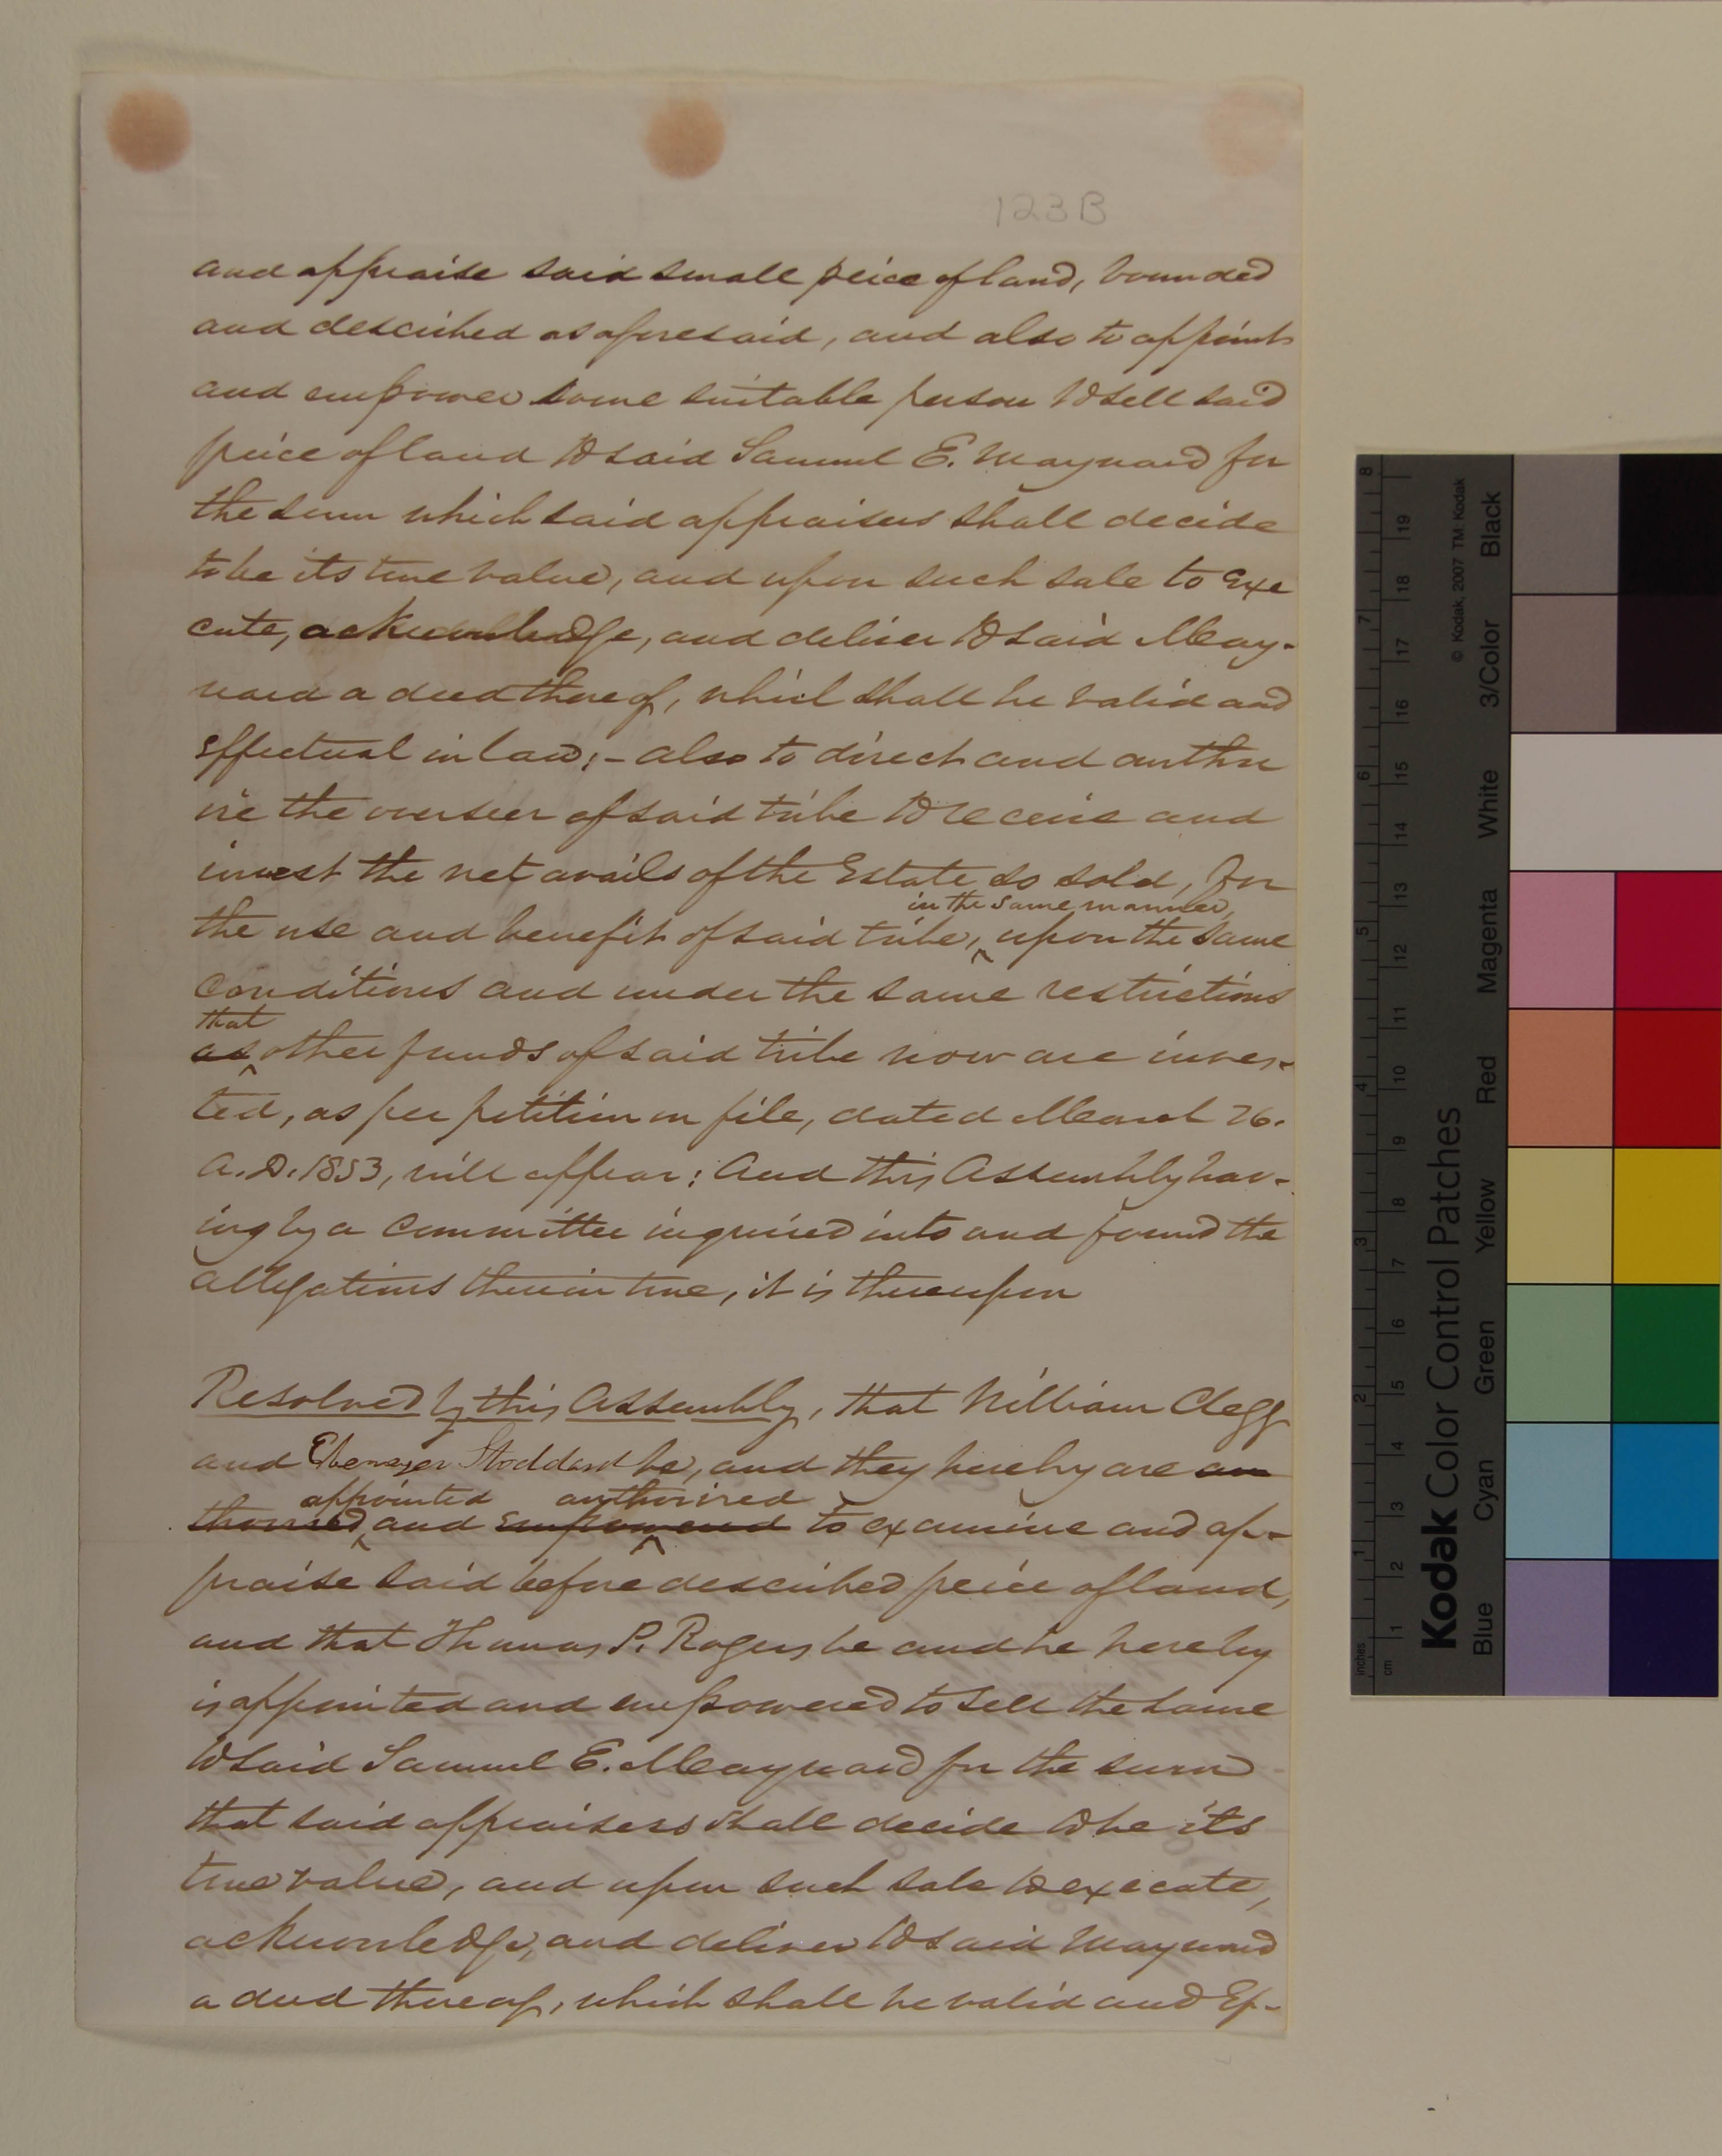 123B
and appraise said small peice of land, bounded
and described as aforesaid, and also to appoint
and empower some suitable person to sell said
peice of land to said Samuel E. Maynard for
the sum which said appraisers shall decide
to be its true value, and upon such sale to exe
cute, acknowledge, and deliver to said May-
nard a deed thereof, which shall be valid and
effectual in law;- also to direct and autho
rize the overseer of said tribe to receive and
invest the net avails of the Estate so sold, for
in the same manner,
the use and benefit of said tribe, ^ upon the same
conditions and under the same restrictions
that
as ^ other funds of said tribe now are inves-
ted, as per petition on file, dated March 26.
A.D. 1853, will appear: And this Assembly hav-
ing by a committee inquired into and found the
allegations therein true, it is thereupon
Resolved by this Assembly, that William Clegg
and Ebenezer Stoddard be, and they hereby are au
appointed authorized
thorised ^ and empowered ^ to examine and ap-
praise said before described peice of land,
and that Thomas P. Rogers be and he hereby
is appointed and empowered to sell the same
to said Samuel E. Maynard for the sum
that said appraisers shall decide to be its
true value, and upon such sale to execute,
acknowledge, and deliver to said Maynard
a deed thereof, which shall be valid and Ef-
Kodak Color Control Patches
© Kodak, 2007 TM: Kodak
Blue Cyan Green Yellow Red Magenta White 3/Color Black
inches 1 2 3 4 5 6 7 8
cm 1 2 3 4 5 6 7 8 9 10 11 12 13 14 15 16 17 18 19